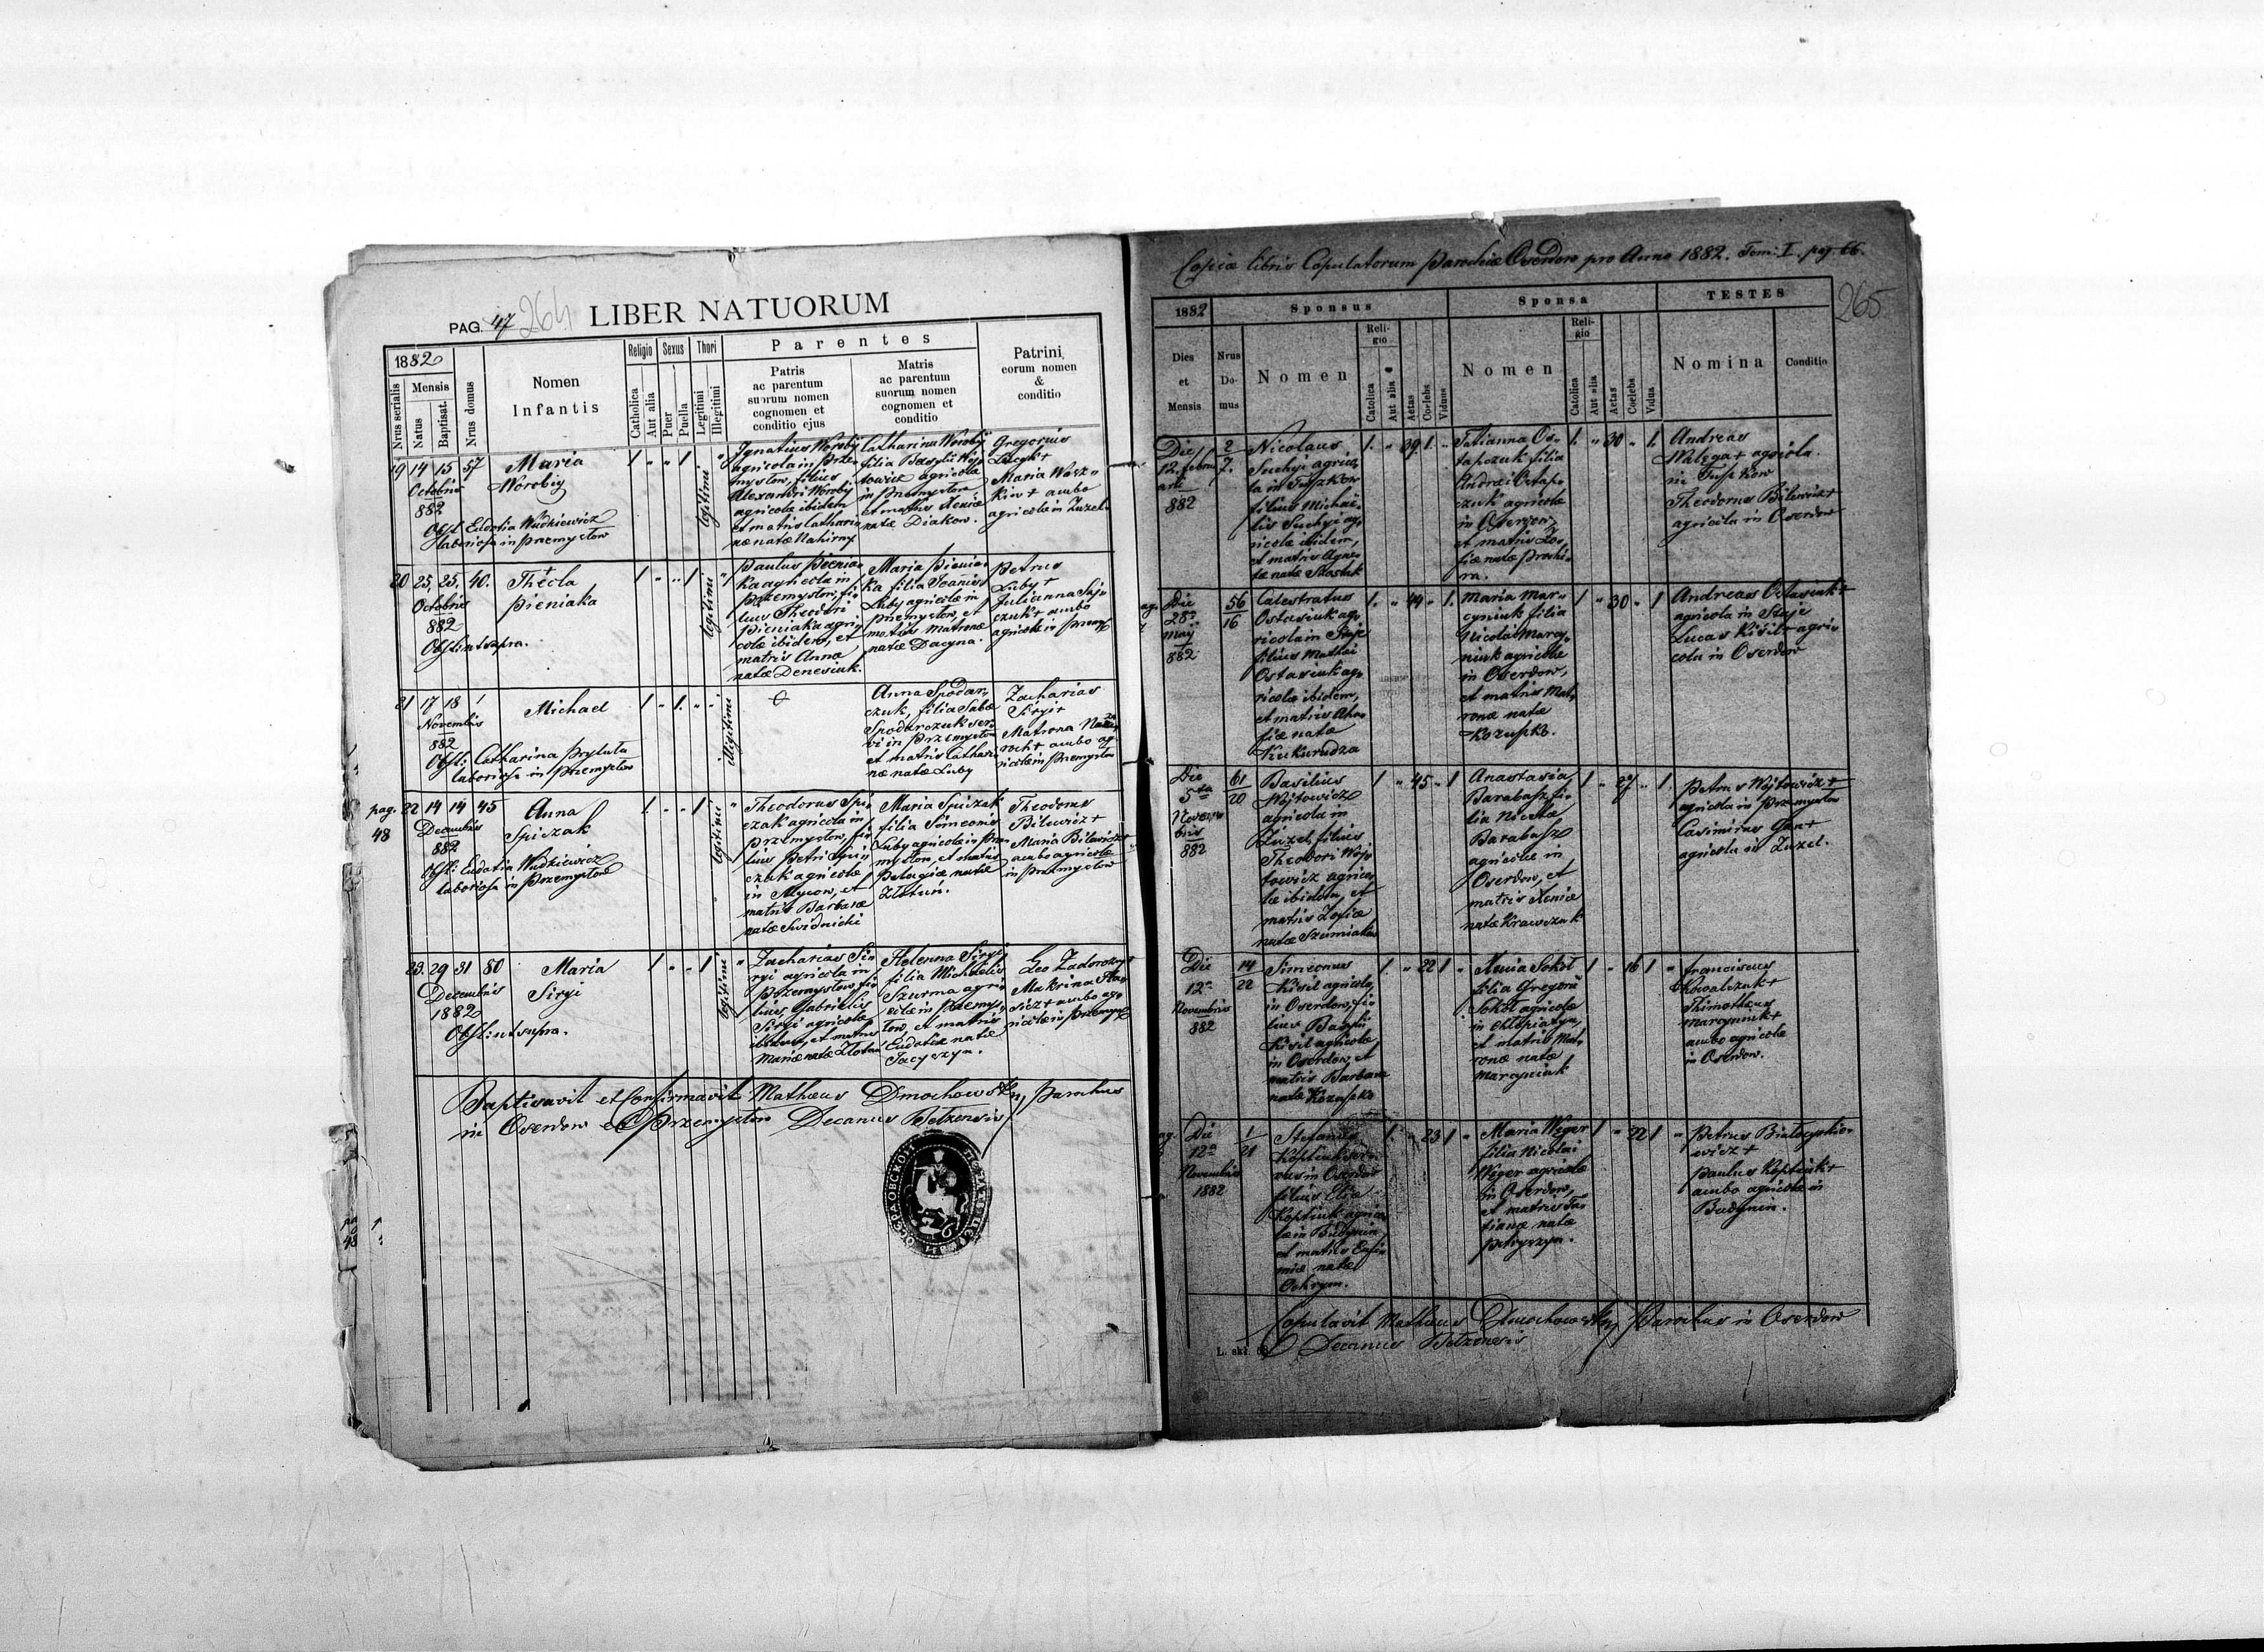 PAG. 47 264 LIBER NATUORUM
1882
Nrus serialis
Mensis
Natus
Baptisat.
Nrus domus
Nomen
Infantis
Religio
Catholica
Aut alia
Sexus
Puer
Puella
Thori
Legitimi
Illegitimi
Parentes
Patris
ac parentum
suorum nomen
cognomen et
conditio ejus
Matris
ac parentum
suorum nomen
cognomen et
conditio
Patrini
eorum nomen
&
conditio
19 14 15 57
Octobris
882
Maria
Worobij
Obst. Eudotia Wudkiewicz
laboriosa in Przemysłow
1 " " 1 legitimi "
Ignatius Worobij
agricola in Prze-
mysłow, filius
Alexandri Worobij
agricolæ ibidem
et matris Cathari-
næ natæ Nahirny
Catharina Worobij
filia Basylii Wój-
towicz agricolæ
in Przemysłow
et matris Xeniæ
natæ Diakow.
Gregorius
Łucyk +
Maria Wasz-
kiw + ambo
agricolæ in Żużel.
20 25, 25. 40.
Octobris
882
Thecla
Pieniaka
Obst. ut supra.
1 " " 1 legitimi "
Paulus Pienia-
ka agricola in
Przemysłow, fi-
lius Theodori
Pieniaka agri-
colæ ibidem, et
matris Anna
natæ Denesiuk.
Maria Pienia-
ka filia Joanis
Luby agricolæ in
Przemysłow, et
matris Matronæ
natæ Dacyna.
Petrus
Luby +
Julianna Saj-
czuk + ambo
agricolæ in Przemys
21 17 18 1
Novembris
882
Michael
Obst. Catharina Prytuła
laboriosa in Przemysłow
1 " 1. " illegitimi
Anna Spodar-
czuk, filia Sabæ
Spodarczuk ser-
vi in Przemysłow
et matris Cathari
næ natæ Luby
Zacharias
Siryi +
Matrona
ambo ag-
ricolæ in Przemysłow
pag. 22 14 14 45
48 Decembris
882
Anna
Spiczak
Obst. Eudotia Wudkiewicz
laboriosa in Przemysłow
1. " " 1 legitimi "
Theodorus Spi-
czak agricola in
Przemysłow, fi-
lius Petri Spi-
czak agricolæ
in Mycow, et
matris Barbaræ
natæ Swidnicki
Maria Spiczak
filia Simeonis
Luby agricolæ in Prze
mysłow, et matris
Pelagiæ natæ
Złotuń.
Theodorus
Bilewicz +
Maria Bilewicz +
ambo agricolæ
in Przemysłow
23. 29 31 80
Decembris
1882
Maria
Siryi
Obst. ut supra.
1 " " 1 legitimi "
Zacharias Si-
ryi agricola in
Przemysłow, fi-
lius Gabrielis
Siryi agricolæ
ibidem, et matris
Mariæ natæ Złotun
Helenna Siryi
filia Michaelis
Szurma agri-
colæ in Przemys-
łow, et matris
Eudotiæ natæ
Jacyszyn.
Leo Zadorozny +
Makrina
+ ambo ag-
ricolæ in Przemys
Baptisavit et Confirmavit Matheus Dmochowsky, Parochus
in Oserdow et Przemysłow Decanus Bełzensis
Copiæ libris Copulatorum Parochiæ Oserdow pro Anno 1882. Tom: I. pag. 66.
265
1882
Dies
et
Mensis
Sponsus
Nrus
Do-
mus
Nomen
Reli-
gio
Catolica
Aut alia
Aetas
Coelebs
Viduus
Sponsa
Nomen
Reli-
gio
Catolica
Aut alia
Aetas
Coelebs
Vidua
TESTES
Nomina
Conditio
Die
12. febru
arii
882
2
7.
Nicolaus
Suchyi agrico-
la in Tuszkow
filius Michae-
lis Suchyi ag-
ricolæ ibidem,
et matris Agne-
tæ natæ Szostak
1. " 39 1. "
Tatianna Os-
tapczuk filia
Andrei Ostap-
czuk agricolæ
in Oserdow
et matris Zo-
fiæ natæ Prochi-
ra.
1. " 30 " 1.
Andreas
Walega + agricola
in Tuszkow
Theodorus Bilewicz +
agricola in Oserdow
Die
28a
May
882
56
16
Calestratus
Ostasiuk ag-
ricola in Staje
filius Mathei
Ostasiuk ag-
ricolæ ibidem,
et matris
natæ
Kukurudza
1. " 44 " 1.
Maria Mar-
cyniuk filia
Nicolai Marcy-
niuk agricolæ
in Oserdow,
et matris Mat-
ronæ natæ
Kozuszko.
1 " 30 " 1
Andreas Ostasiuk +
agricola in Staje
Lucas Kisil + agri-
cola in Oserdow
Die
5ta
Novem-
bris
882
61
20
Basilius
Wojtowicz
agricola in
Żużel, filius
Theodori Woj-
towicz agrico-
læ ibidem, et
matris Zofiæ
natæ Szumiako
1 " 45 " 1
Anastasia
Barabasz, fi-
lia Nicolai
Barabasz
agricolæ in
Oserdow, et
matris Xeniæ
natæ Krawczuk
1 " 27 " 1.
Petrus Wójtowicz +
agricola in Przemysłow
Casimirus +
agricola in Żużel.
Die
12a
Novembris
882
14
22
Simeonus
Kisil agricola
in Oserdow, fi-
lius Basylii
Kisil agricolæ
in Oserdow, et
matris Barbaræ
natæ Kozuszko
1. " 22 1 "
Xenia Sokoł
filia Gregorii
Sokoł agricolæ
in Chłopiatyn,
et matris Mat-
ronæ natæ
Marcyniuk
1 " 16 1 "
Franciscus
Kowalczuk +
Thimotheus
Marcyniuk +
ambo agricolæ
in Oserdow.
Die
12a
Novembris
1882
1
21
Stefanus
Koptiuk ser-
vus in Oserdow
filius Eliæ
Koptiuk agrico-
læ in Budynin
et matris Eufi-
miæ natæ
Ochrym.
1. " 23 1 "
Maria Weger
filia Nicolai
Weger agricolæ
in Oserdow,
et matris Ta-
tianæ natæ
Petryszyn.
1 " 22 1 "
Petrus Białoszkie-
wicz +
Paulus Koptiuk +
ambo agricolæ in
Budynin.
Copulavit Matheus Dmochowsky, Parochus in Oserdow
Decanus Bełzensis